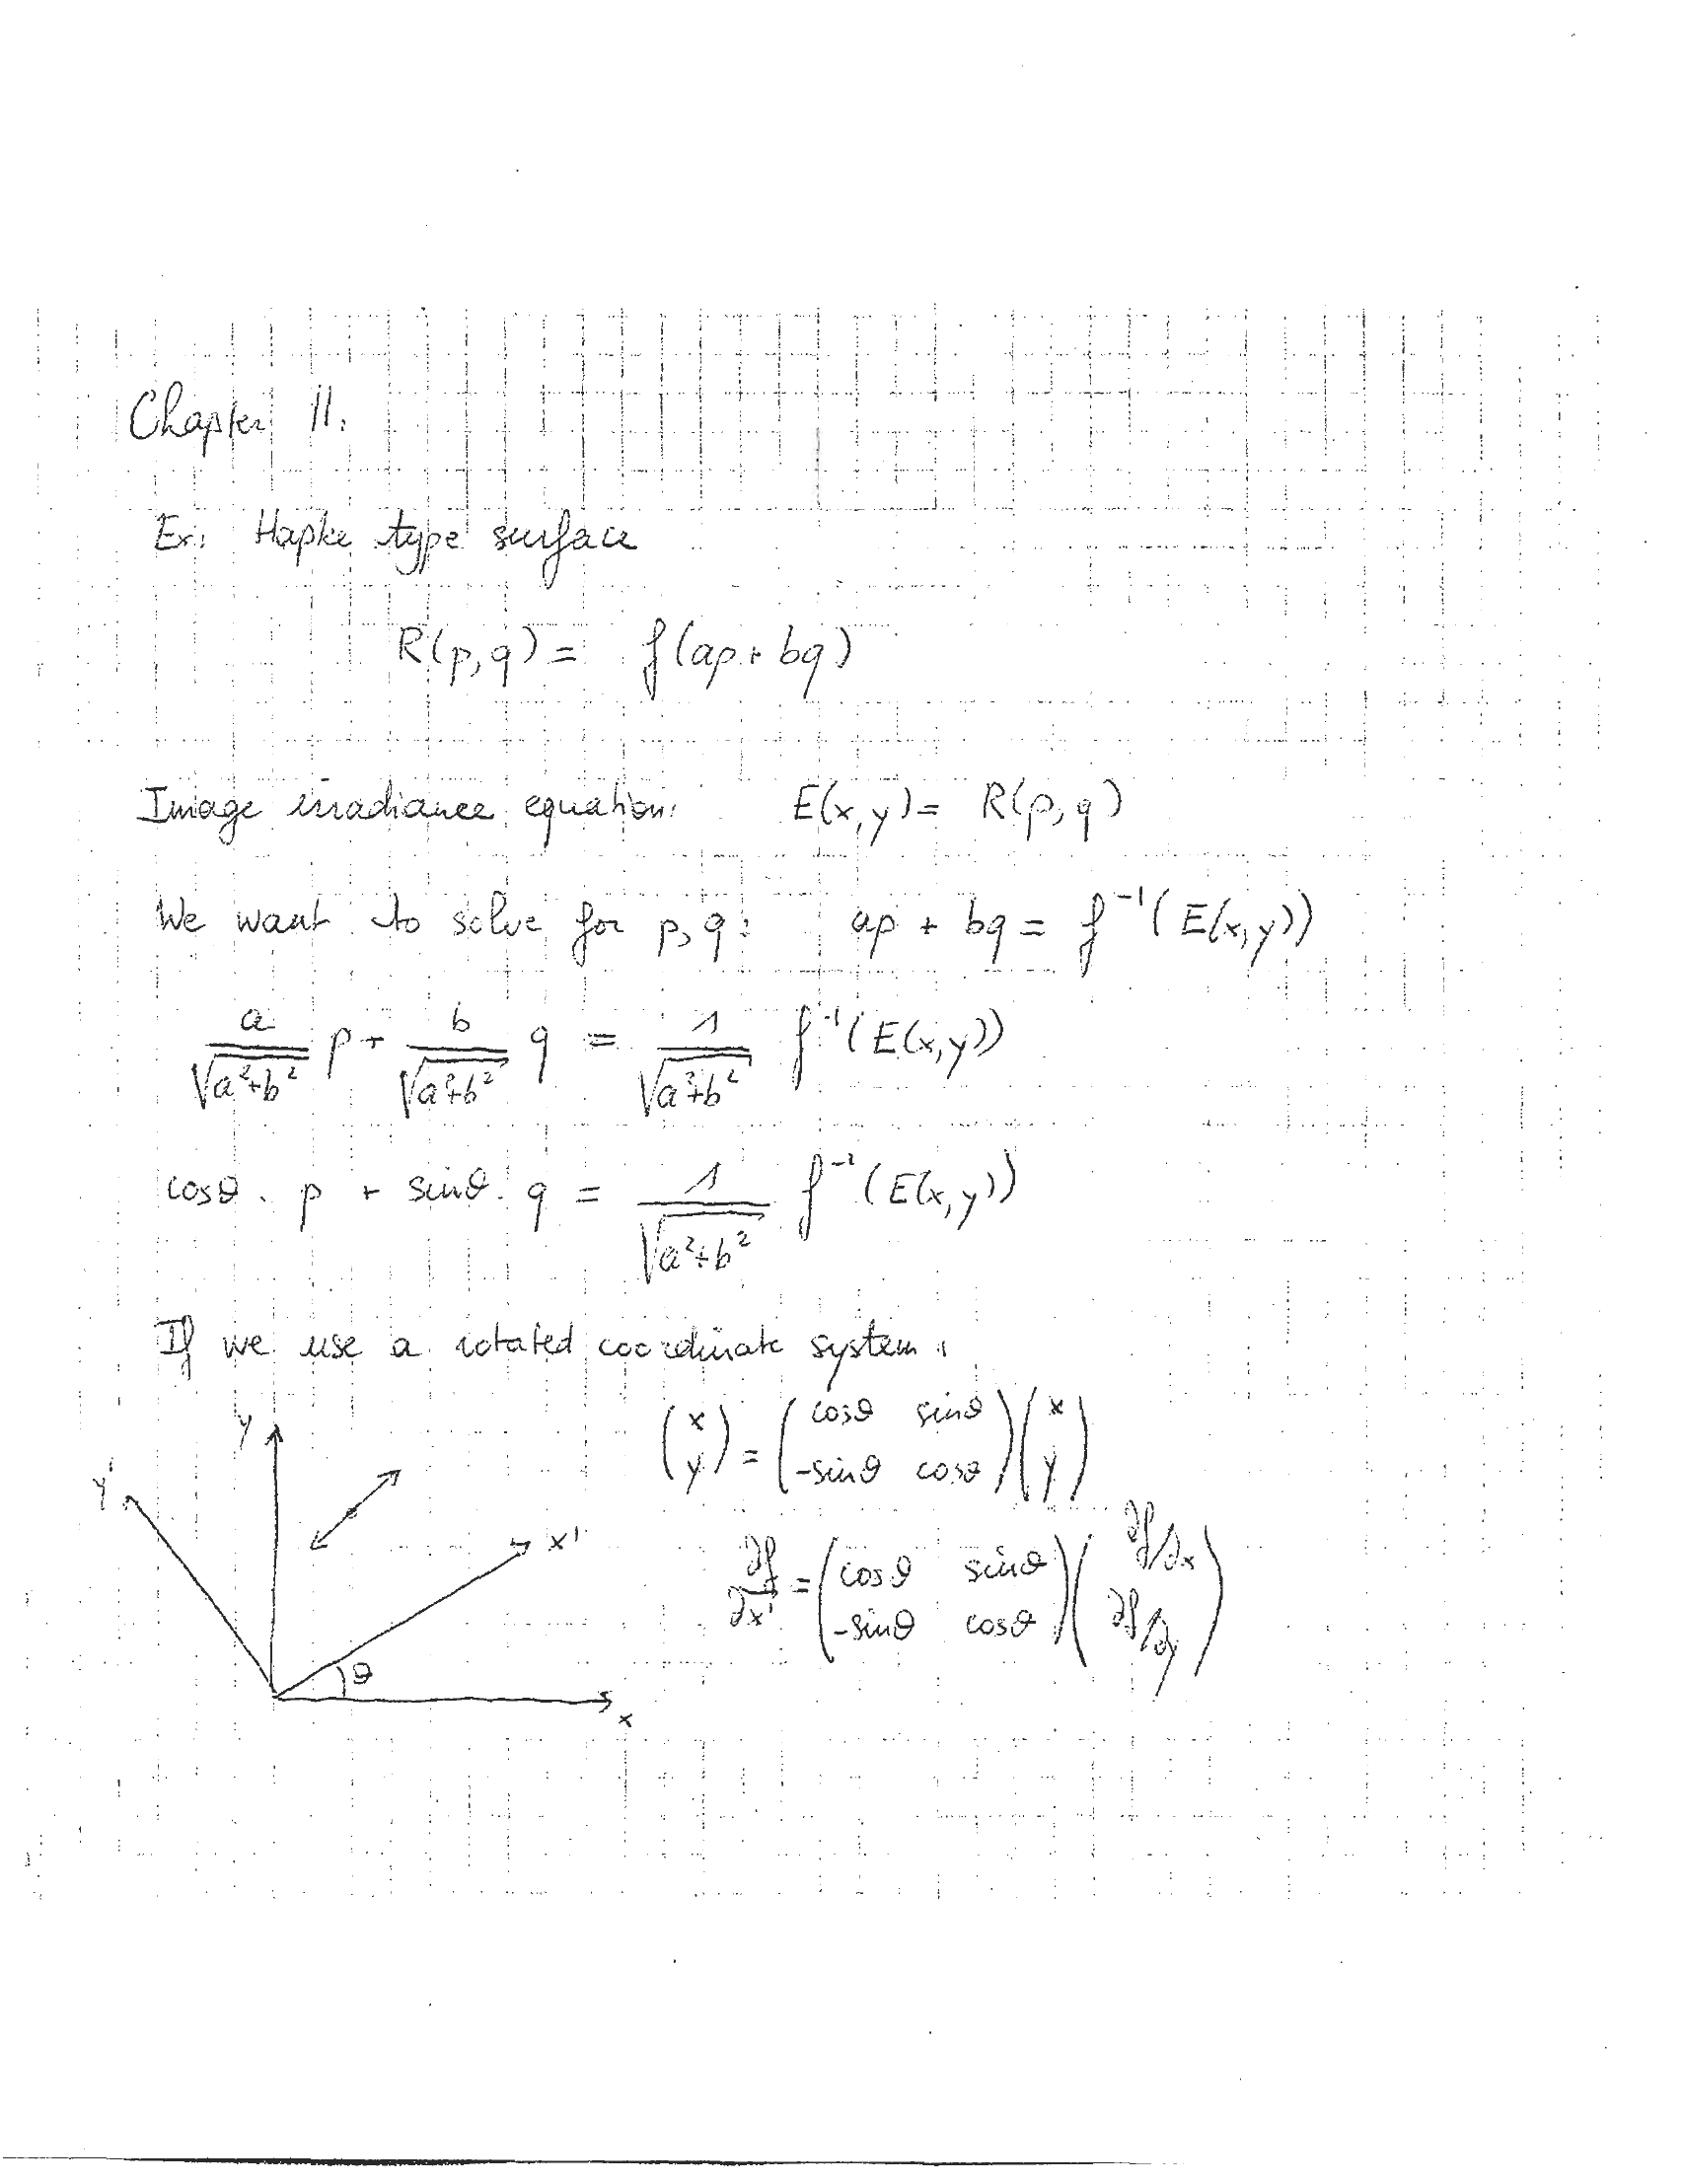 Chapter 11.
Ex: Hapke type surface
R(p,q) = f(ap + bq)
Image irradiance equation: E(x,y) = R(p,q)
We want to solve for p, q: ap + bq = f⁻¹(E(x,y))
a/√(a²+b²) p + b/√(a²+b²) q = 1/√(a²+b²) f⁻¹(E(x,y))
cosθ · p + sinθ · q = 1/√(a²+b²) f⁻¹(E(x,y))
If we use a rotated coordinate system:
(x y) = (cosθ sinθ -sinθ cosθ)(x y)
∂f/∂x' = (cosθ sinθ -sinθ cosθ)(∂f/∂x ∂f/∂y)
y
y'
x'
θ
x